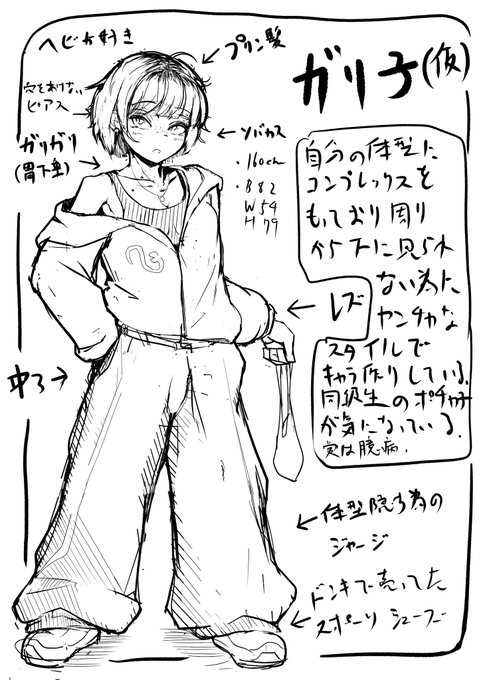 ヘビが好き
プリン髪
ガリ子(仮)
穴をあけない
ピアス
ガリガリ
(胃下垂)
ソバカス
・160cm
・B82
W54
H79
自分の体型に
コンプレックスを
もっており周り
から下に見られ
ない為に
ヤンチャな
スタイルで
キャラ作りしている。
同級生のポチャ子
が気になっている。
実は臆病.
レズ
中3
体型隠す為の
ジャージ
ドンキで売ってた
スポーツシューズ